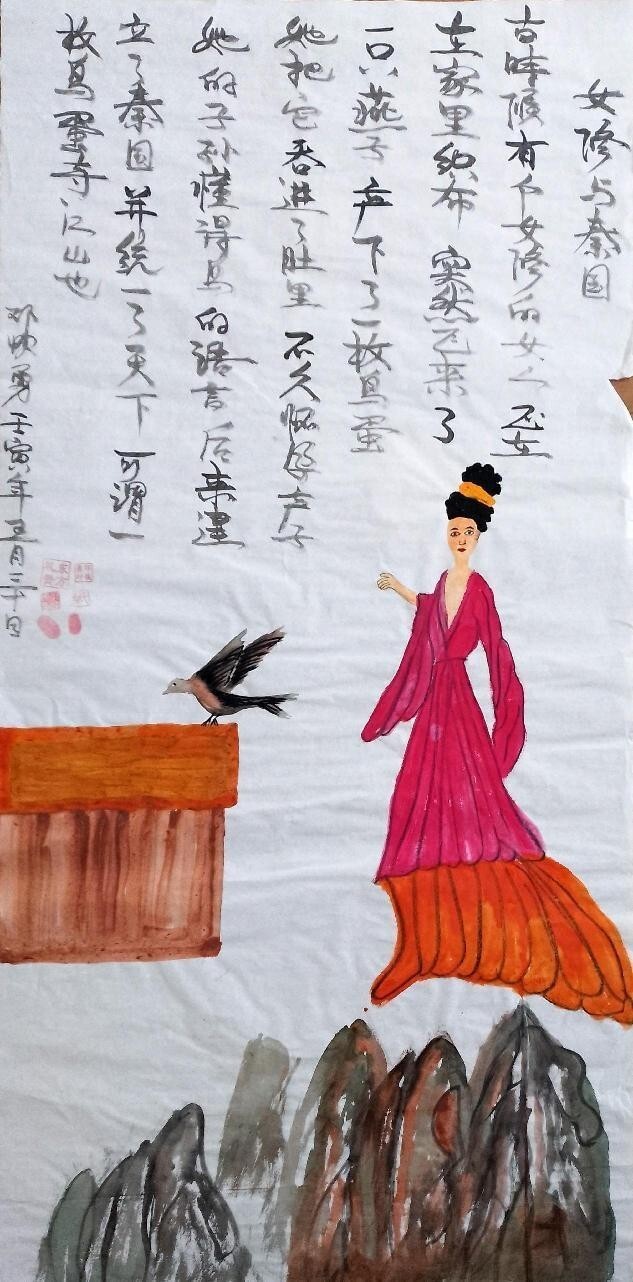 女修与秦国
古时候有个女修的女人 正在
在家里织布 突然飞来了
一只燕子 产下了一枚鸟蛋
她把它吞进了肚里 不久怀孕产子
她的子孙懂得鸟的语言 后来建
立了秦国 并统一了天下 可谓一
枚鸟蛋夺江山也
邓 勇 壬寅年五月三十日